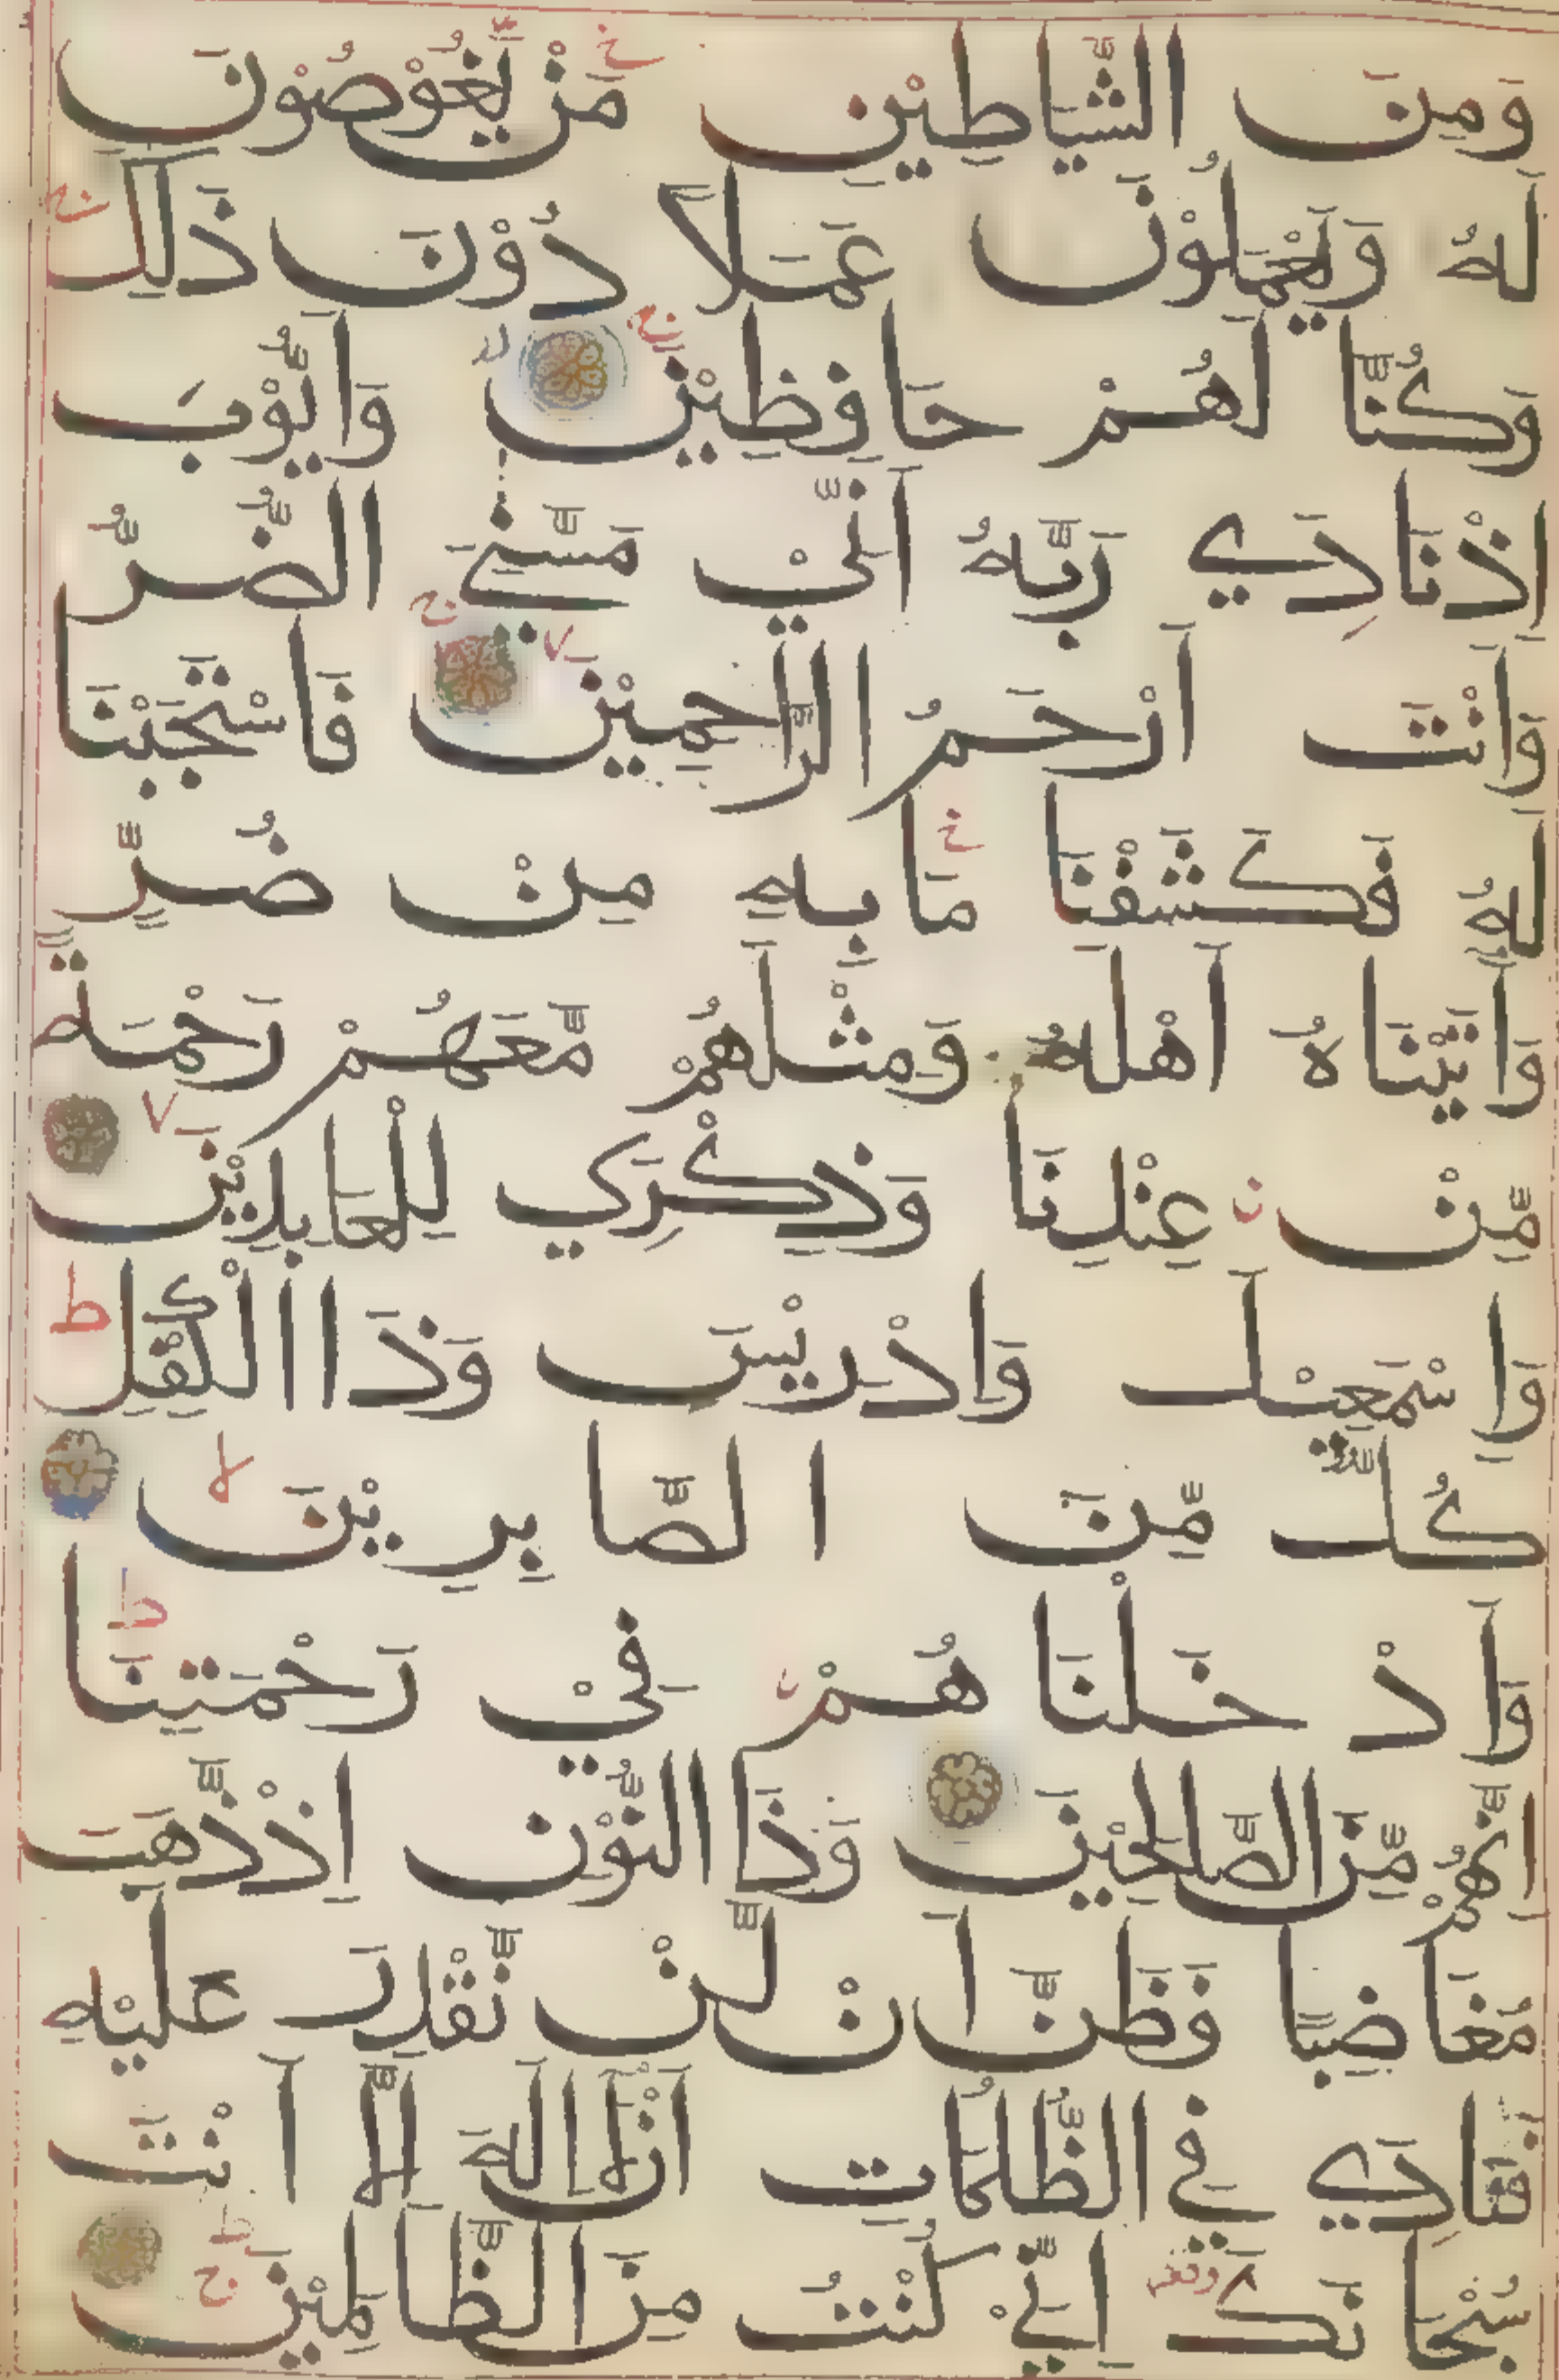 وَمِنَ الشَّيَاطِيْنِ مَنْ يَّغُوْصُوْنَ
لَهُ وَيَعْمَلُوْنَ عَمَلًا دُوْنَ ذَلِكَ
وَكُنَّا لَهُمْ حَافِظِيْنَ وَاَيُّوْبَ
اِذْنَادَي رَبَّهُ اَنِّيْ مَسَّنِيَ الضُّرُّ
وَاَنْتَ اَرْحَمُ الرَّاحِمِيْنَ فَاسْتَجَبْنَا
لَهُ فَكَشَفْنَا مَا بِهِ مِنْ ضُرٍّ
وَاَتَيْنَاهُ اَهْلَهُ وَمِثْلَهُمْ مَّعَهُمْ رَحْمَةً
مِّنْ عِنْدِنَا وَذِكْرَي لِلْعَابِدِيْنَ
وَاِسْمَعِيْلَ وَاِدْرِيْسَ وَذَا الْكِفْلِ
كُلٌّ مِّنَ الصَّابِرِيْنَ
وَاَدْخَلْنَاهُمْ فِيْ رَحْمَتِنَا
اِنَّهُمْ مِّنَ الصَّالِحِيْنَ وَذَا النُّوْنِ اِذْ ذَّهَبَ
مُغَاضِبًا فَظَنَّ اَنْ لَّنْ نَّقْدِرَ عَلَيْهِ
فَنَادَي فِي الظُّلُمَاتِ اَنْ لَا اِلَهَ اِلَّا اَنْتَ
سُبْحَانَكَ اِنِّيْ كُنْتُ مِنَ الظَّالِمِيْنَ